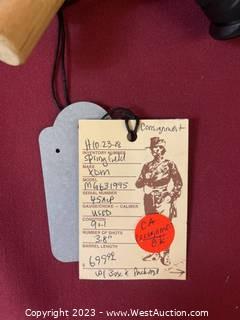 Consignment
H10-23-88
INVENTORY NUMBER
Springfield
MAKE
XDM
MODEL
MG631995
SERIAL NUMBER
45ACP
GAUGE/CHOKE - CALIBER
USED
CONDITION
9+1
NUMBER OF SHOTS
3.8"
BARREL LENGTH
$699.00
CA
OK
w/ Box &
Copyright 2023 - www.WestAuction.com